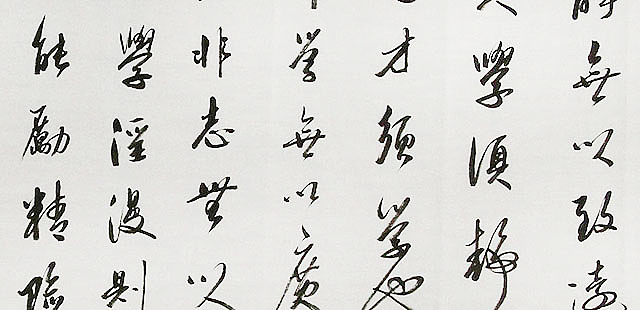 靜無以致遠
夫學須靜
也才須學也
學無以廣
非志無以
學淫漫則
能勵精險